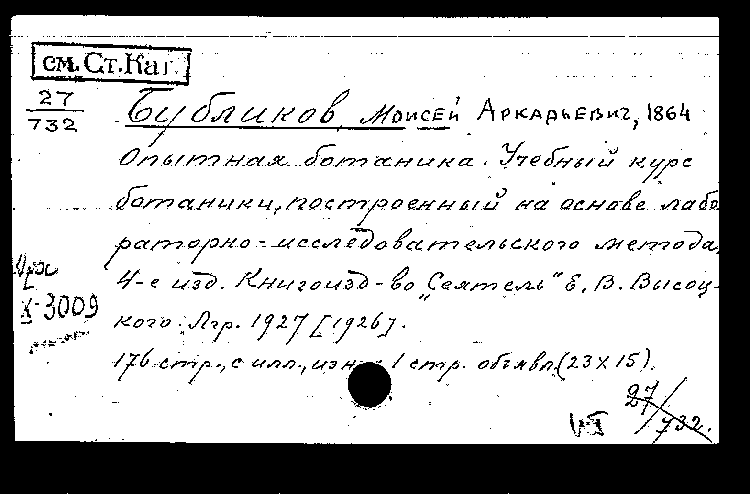 см. Ст.Кат.
27
732
Бубликов, Моисей Аркадьевич, 1864
Опытная ботаника. Учебный курс
ботаники, построенный на основе лабо
раторно-исследовательского метода.
4-е изд. Книгоизд-во "Сеятель" Е. В. Высоц-
кого. Лгр. 1927 [1926].
176 стр., с илл., 1 стр. объявл. (23 x 15).
X-3009
27/732.